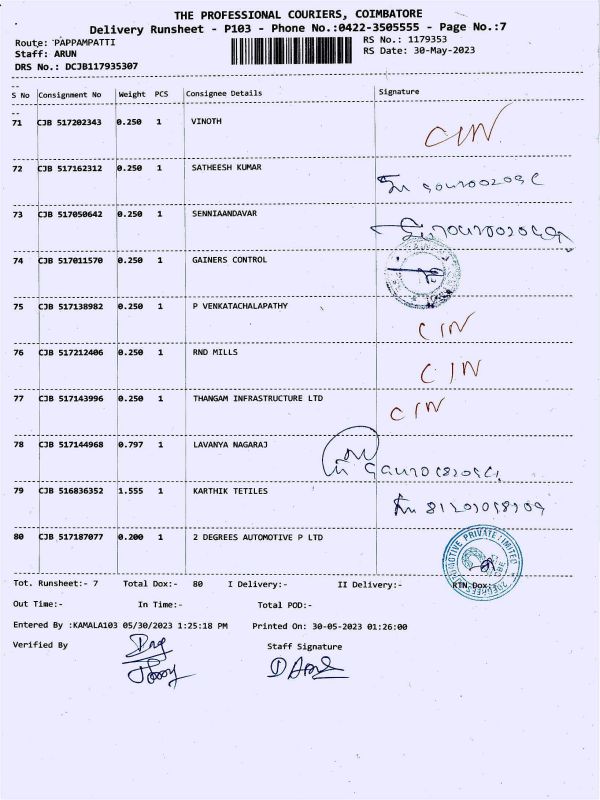 THE PROFESSIONAL COURIERS, COIMBATORE
Delivery Runsheet - P103 - Phone No.:0422-3505555 - Page No.:7
Route: PAPPAMPATTI RS No.: 1179353
Staff: ARUN RS Date: 30-May-2023
DRS No.: DCJB117935307
S No Consignment No Weight PCS Consignee Details Signature
71 CJB 517202343 0.250 1 VINOTH CIN
72 CJB 517162312 0.250 1 SATHEESH KUMAR
73 CJB 517050642 0.250 1 SENNIAANDAVAR
74 CJB 517011570 0.250 1 GAINERS CONTROL
75 CJB 517138982 0.250 1 P VENKATACHALAPATHY CIN
76 CJB 517212406 0.250 1 RND MILLS CIN
77 CJB 517143996 0.250 1 THANGAM INFRASTRUCTURE LTD CIN
78 CJB 517144968 0.797 1 LAVANYA NAGARAJ
79 CJB 516836352 1.555 1 KARTHIK TETILES
80 CJB 517187077 0.200 1 2 DEGREES AUTOMOTIVE P LTD
Tot. Runsheet:- 7 Total Dox:- 80 I Delivery:- II Delivery:- RTN Dox:
Out Time:- In Time:- Total POD:-
Entered By :KAMALA103 05/30/2023 1:25:18 PM Printed On: 30-05-2023 01:26:00
Verified By Staff Signature